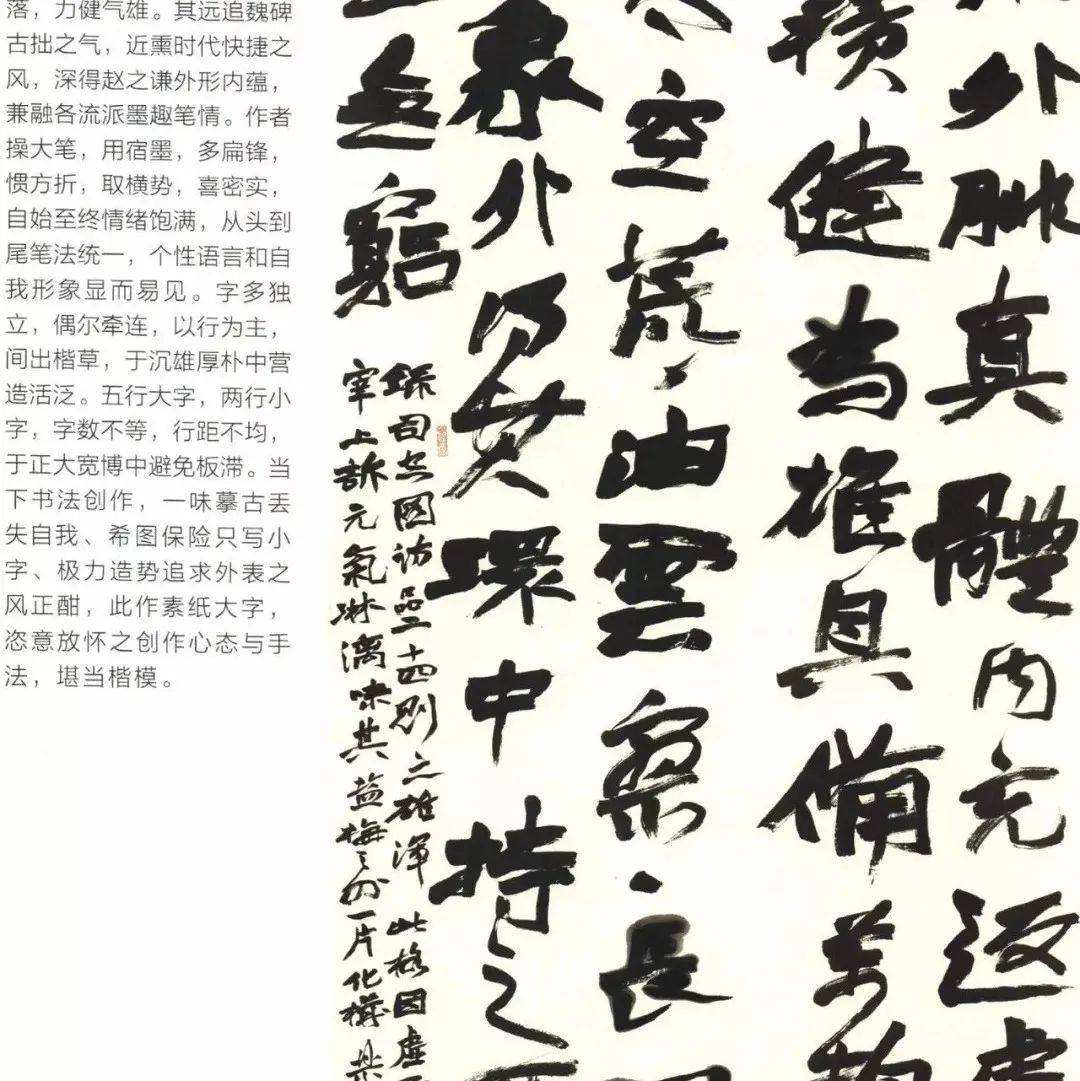 落，力健气雄。其远追魏碑
古拙之气，近熏时代快捷之
风，深得赵之谦外形内蕴，
兼融各流派墨趣笔情。作者
操大笔，用宿墨，多扁锋，
惯方折，取横势，喜密实，
自始至终情绪饱满，从头到
尾笔法统一，个性语言和自
我形象显而易见。字多独
立，偶尔牵连，以行为主，
间出楷草，于沉雄厚朴中营
造活泛。五行大字，两行小
字，字数不等，行距不均，
于正大宽博中避免板滞。当
下书法创作，一味摹古丢
失自我、希图保险只写小
字、极力造势追求外表之
风正酣，此作素纸大字，
恣意放怀之创作心态与手
法，堪当楷模。
外腓真體内充返虚
積健為雄具備萬物
空荒、油雲寥、長
象外得其環中持之
無窮
錄司空圖詩品二十四則之雄渾 此格因虚
宰上訴元氣淋漓味其鹽梅之外一片化機